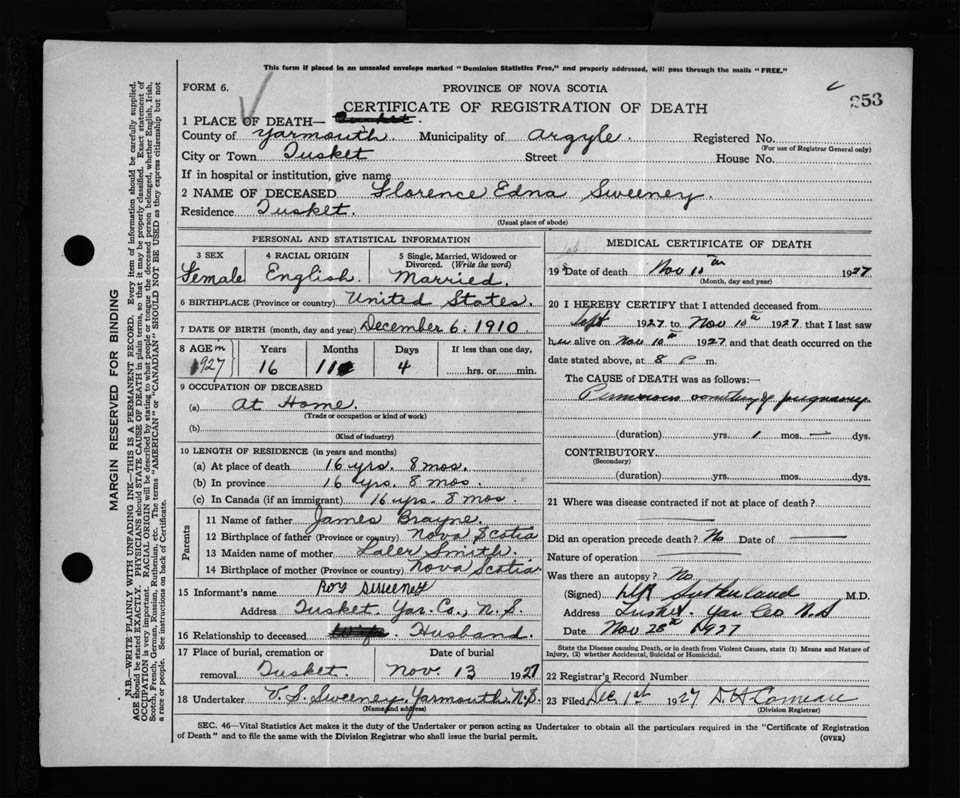 This form if placed in an unsealed envelope marked "Dominion Statistics Free," and properly addressed, will pass through the mails "FREE."
FORM 6.
PROVINCE OF NOVA SCOTIA
953
CERTIFICATE OF REGISTRATION OF DEATH
1 PLACE OF DEATH—
County of Yarmouth Municipality of Argyle. Registered No.
(For use of Registrar General only)
City or Town Tusket Street House No.
If in hospital or institution, give name
2 NAME OF DECEASED Florence Edna Sweeney.
Residence Tusket.
(Usual place of abode)
PERSONAL AND STATISTICAL INFORMATION
3 SEX 4 RACIAL ORIGIN 5 Single, Married, Widowed or Divorced. (Write the word)
Female English. Married.
6 BIRTHPLACE (Province or country) United States.
7 DATE OF BIRTH (month, day and year) December 6, 1910
8 AGE in Years Months Days If less than one day,
1927 16 11 4 hrs. or min.
9 OCCUPATION OF DECEASED
(a) At Home.
(Trade or occupation or kind of work)
(b)
(Kind of industry)
10 LENGTH OF RESIDENCE (in years and months)
(a) At place of death 16 yrs. 8 mos.
(b) In province 16 yrs. 8 mos.
(c) In Canada (if an immigrant) 16 yrs. 8 mos.
Parents
11 Name of father James Brayne.
12 Birthplace of father (Province or country) Nova Scotia
13 Maiden name of mother Smith.
14 Birthplace of mother (Province or country) Nova Scotia
15 Informant's name Roy Sweeney
Address Tusket. Yar. Co., N.S.
16 Relationship to deceased Wife. Husband.
17 Place of burial, cremation or Date of burial
removal Tusket. Nov. 13 1927
18 Undertaker V. S. Sweeney. Yarmouth. N.S.
(Name and address)
MEDICAL CERTIFICATE OF DEATH
19 Date of death Nov 10th 1927
(Month, day and year)
20 I HEREBY CERTIFY that I attended deceased from
Sept 1927 to Nov 10th 1927 that I last saw
her alive on Nov 10th 1927 and that death occurred on the
date stated above, at 8 P m.
The CAUSE OF DEATH was as follows:—
Pernicious vomiting of pregnancy
(duration) yrs. 1 mos. — dys.
CONTRIBUTORY
(Secondary)
(duration) yrs. mos. dys.
21 Where was disease contracted if not at place of death?
Did an operation precede death? No Date of —
Nature of operation —
Was there an autopsy? No
(Signed) Sutherland M.D.
Address Tusket. Yar Co N.S
Date Nov 28th 1927
State the Disease causing Death, or in death from Violent Causes, state (1) Means and Nature of Injury, (2) whether Accidental, Suicidal or Homicidal.
22 Registrar's Record Number
23 Filed Dec 1st 1927 Comeau
(Division Registrar)
SEC. 46—Vital Statistics Act makes it the duty of the Undertaker or person acting as Undertaker to obtain all the particulars required in the "Certificate of Registration
of Death" and to file the same with the Division Registrar who shall issue the burial permit.
(OVER)
MARGIN RESERVED FOR BINDING
N.B.—WRITE PLAINLY WITH UNFADING INK—THIS IS A PERMANENT RECORD. Every item of information should be carefully supplied.
AGE should be stated EXACTLY. PHYSICIANS should STATE CAUSE OF DEATH in plain terms, so that it may be properly classified. Exact statement of
OCCUPATION is very important. RACIAL ORIGIN will be described by stating to what people or tongue the deceased person belonged, whether English, Irish,
Scotch, French, German, Russian, Ruthenian, etc. The terms "AMERICAN" or "CANADIAN" SHOULD NOT BE USED as they express citizenship but not
a race or people. See instructions on back of Certificate.